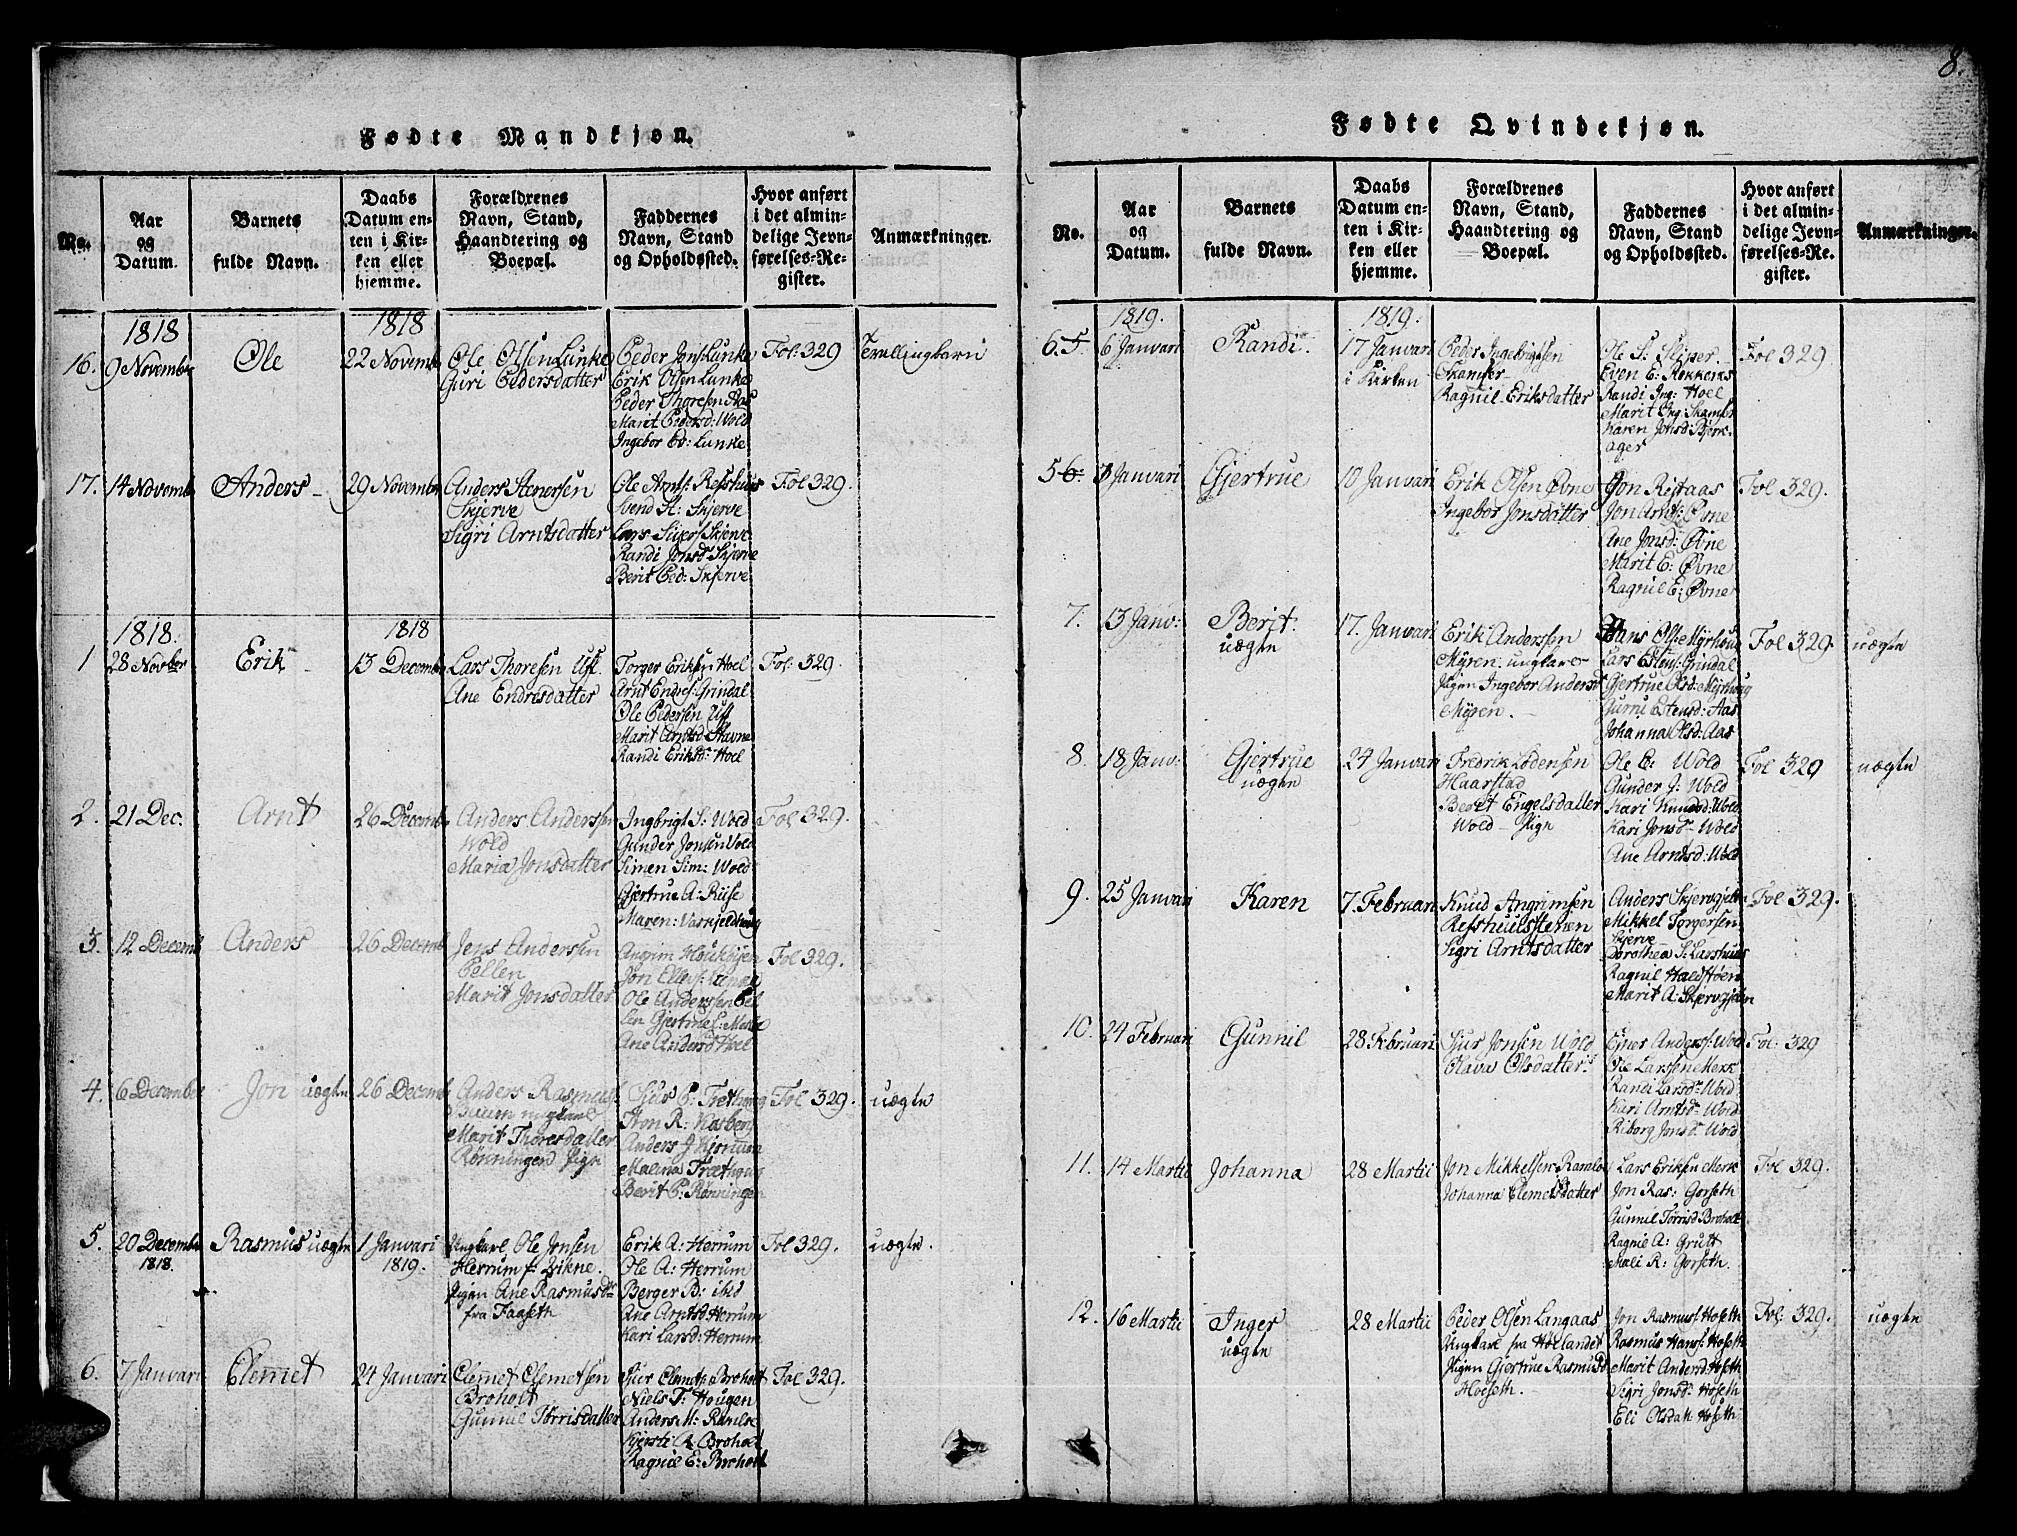 8.
Fødte Mandkjøn.
No.
Aar
og
Datum.
Barnets
fulde Navn.
Daabs
Datum en-
ten i Kir-
ken eller
hjemme.
Forældrenes
Navn, Stand,
Haandtering og
Boepæl.
Faddernes
Navn, Stand
og Opholdssted.
Hvor anført
i det almin-
delige Jevn-
førelses-Re-
gister.
Anmærkninger.
1818
16. 9 Novembr
Ole
1818
22 Novembr
Ole Olsen Lunke
Guri Pedersdatter
Peder Jons: Lunke
Erik Olsen Lunke
Peder Thoresen Aas
Marit Pedersd: Wold
Ingebor Ed: Lunke
Fol: 329
Tvillingbarn
17. 14 Novembr
Anders
29 Novembr
Anders Stenersen
Skjerve
Sigri Arntsdatter
Ole Arnts: Refshuus
Svend St: Skjerve
Lars Sijers: Skjerve
Randi Jonsdr Skjerve
Berit Ped: Skjerve
Fol 329.
1818.
1 28 Novber
Erik
1818
13 Decembr
Lars Thoresen Uff
Ane Endresdatter
Torger Eriksen Hoel
Arnt Endres: Grindal
Ole Pedersen Uff
Marit Arntsd: Stavne
Randi Eriksdr Hoel
Fol: 329.
2. 21 Dec:
Arnt
26 Decemb
Anders Andersen
Wold
Maria Jonsdatter
Ingbrigt S: Wold
Gunder Jonsen Wold
Simen Sim: Wold
Gjertrue A: Riise
Maren: Vaskjeldhaug
Fol 329.
3. 12 Decemb
Anders
26 Decemb
Jens Andersen
Pellen
Marit Jonsdatter
Angrim
Jon Ellevs:
Ole Andersen Pel
len Gjertrue E: Merk
Ane Andersd Hoel
Fol 329.
4. 6 December
Jon uægte
26 Decemb
Anders Rasmus:
ungkarl
Marit Thoresdatter
Rønningen Pige
Sjur P: Træthaug
Ston R: Kosberg
Anders J
Malina Træthaug
Berit P: Rønningen
Fol 329.
uægte
5. 20 Decembr
1818.
Rasmus uægte
1 Januari
1819.
Ungkarl Ole Jonsen
Herrum
Pigen Ane Rasmusdr
fra Faaseth
Erik A: Herrum
Ole A: Herrum
Berger B: ibid
Ane Arntsd Herrum
Kari Larsd: Herrum
Fol 329.
uægte.
6. 7 Januari
Clemet
24 Januari
Clemet Clemetsen
Broholt
Gunnil Torrisdatter
Sjur Clemets: Broholt
Niels T: Hougen
Anders M: Ramlo
Kjersti A Broholt
Ragnil E: Broholt
Fol 329.
Fødte Qvindekjøn.
No.
Aar
og
Datum.
Barnets
fulde Navn.
Daabs
Datum en-
ten i Kir-
ken eller
hjemme.
Forældrenes
Navn, Stand,
Haandtering og
Boepæl.
Faddernes
Navn, Stand
og Opholdssted.
Hvor anført
i det almin-
delige Jevn-
førelses-Re-
gister.
Anmærkninger.
1819.
6. 5. 6 Januari
Randi.
1819.
17 Januari
i Kirken
Peder Ingebrigtsen
Skamfer
Ragnil Eriksdatter
Ole S: Sliper
Even E: Rokkenes
Randi Ing: Hoel
Marit Ing: Skamfr
Karen Jonsd: Bjerk-
ager
Fol 329
5 6. 3 Januari
Gjertrue
10 Januari
Erik Olsen Øvne
Ingebor Jonsdatter
Jon Reitaas
Jon Arnt: Øvne
Ane Jonsd: Øvne
Marit E: Øvne
Ragnil E: Øvne
Fol 329.
7. 13 Janv:
Berit.
uægte
17. Januari
Erik Andersen
Myren ungkarl
Pigen Ingebor Andersd
Myren.
Hans Ols: Myrhoug
Lars Estens: Grindal
Gjertrue Olsd: Myrhoug
Gurru Estensd: Aas
Johanna Olsd: Aas
Fol 329.
uægte
8. 18 Janv:
Gjertrue
uægte
24 Januari
Fredrik Lodensen
Haarstad
Berit Engelsdatter
Wold Pige
Ole E: Wold
Gunder J: Wold
Kari Knudsd: Wold
Kari Jonsdr Wold
Ane Arntsd: Wold
Fol 329
uægte
9. 25 Januari
Karen
7. Februari
Knud Angrimsen
Refshuusstenen
Sigri Arntsdatter
Anders Skjervgjelen
Mikkel Torgersen
Skjerve
Dorothea S: Larshuus
Ragnil Haldstøen
Marit A: Skjervgjelen
Fol 329.
10. 24 Februari
Gunnil
28 Februari
Sjur Jonsen Wold
Olava Olsdatter
Einer Anders: Wold
Ole Larssen Merk
Randi Larsdr Wold
Kari Arntsdr Wold
Siborg Jonsdr Wold
Fol: 329
11. 14 Martii
Johanna
28 Martii
Jon Mikkelsen Ramlo
Johanna Clemetsdatter
Lars Eriksen Merk
Jon Ras: Gorseth
Gunnil Torrisd Broholt
Ragnil A: Grutt
Mali R: Gorseth.
Fol 329.
12. 16 Martii
Inger
uægte
28 Martii
Peder Olsen Langaas
Ungkarl fra Høelandet
Pigen Gjertrue Rasmusdr
Hoeseth.
Jon Rasmus: Hoseth
Rasmus Hans: Hoseth
Marit Andersd Hoseth
Sigri Jonsdr Hoseth
Eli Olsdatt Hoseth
Fol: 329.
uægte